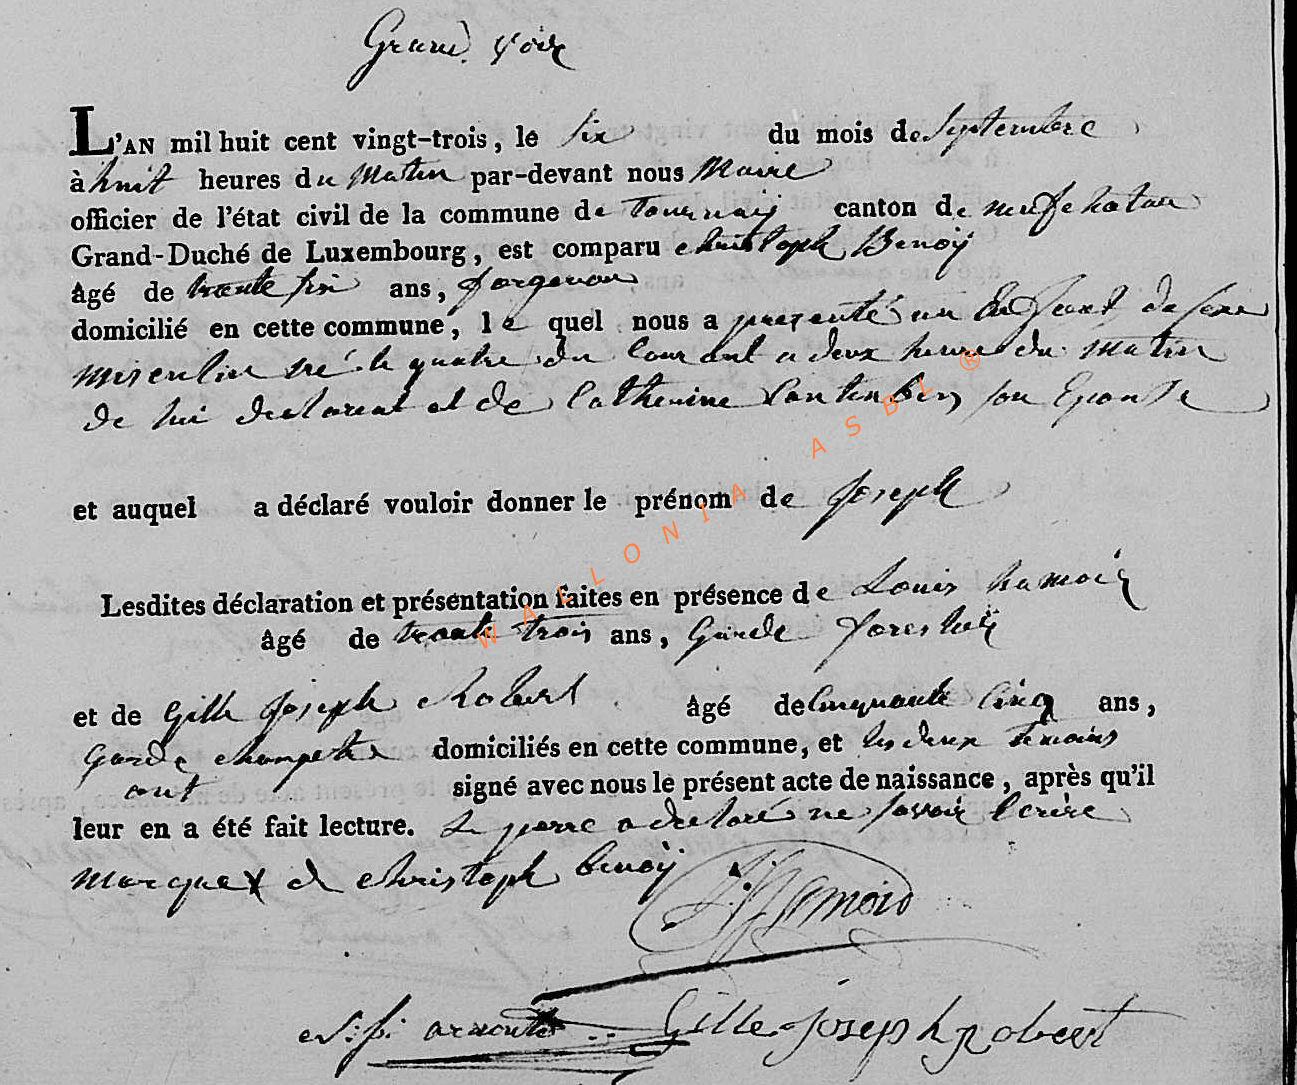 Grand voir
L'AN mil huit cent vingt-trois, le six du mois de Septembre
à huit heures du Matin par-devant nous Maire
officier de l'état civil de la commune de Tournaij canton de neufchatau
Grand-Duché de Luxembourg, est comparu christoph Benoij
âgé de trente six ans, forgeron
domicilié en cette commune, le quel nous a presenté un Enfant de sexe
masculin né le quatre du Courant a deux heures du Matin
de lui declarant et de Catherine son Epouse
et auquel a déclaré vouloir donner le prénom de Joseph
Lesdites déclaration et présentation faites en présence de Louis hamoir
âgé de trente trois ans, Garde forestier
et de Gille Joseph Robert âgé de Cinquante Cinq ans,
Garde champetre domiciliés en cette commune, et les deux temoins
ont signé avec nous le présent acte de naissance, après qu'il
leur en a été fait lecture. Le perre a declaré ne savoir Ecrire
marque X de christoph benoij
Gille Joseph Robert
WALLONIA ASBL ®